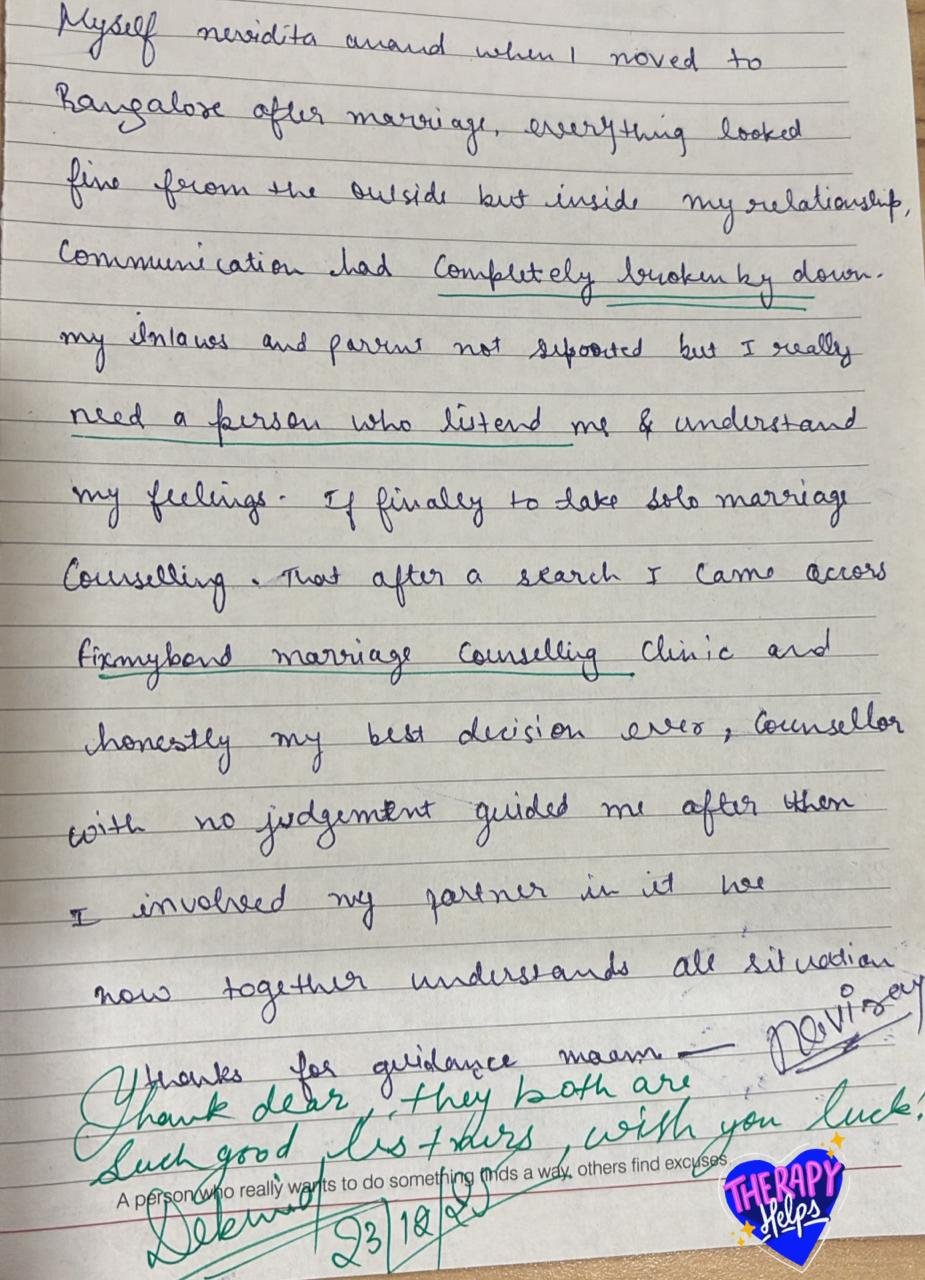 Myself nevidita anand when I noved to
Bangalore after marriage, everything looked
fine from the outside but inside my relationship,
Communication had completely broken by down.
my Inlaws and parent not supooted but I really
need a person who listend me & understand
my feelings. If finally to take solo marriage
Counselling. That after a search I came accors
fixmybond marriage counselling Clinic and
honestly my best decision ever, Counsellor
with no judgement guided me after then
I involved my partner in it we
now together understands all situation
Thanks for guidance maam —
Thank dear, they both are
Such good listners, with you luck!
A person who really wants to do something finds a way, others find excuses.
23/12/25
THERAPY
Helps